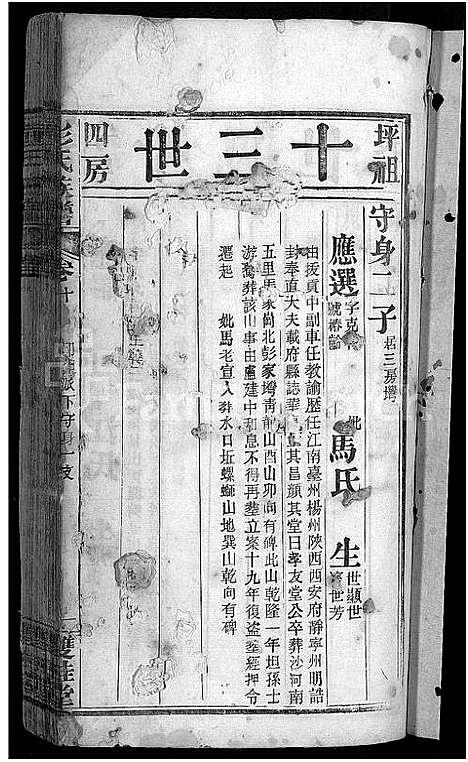 坪祖
十三世
四房
守身二子 居三房灣
應選 字克 號椿齡
妣馬氏
生 世顯 世 世芳
由拔貢中副車任教諭歷任江南臺州楊州陝西西安府靜寧州明誥
封奉直大夫載府縣誌華 其昌顏其堂曰孝友堂公卒葬沙河南
五里馬家尚北彭家塆靑龍山酉山卯向有碑此山乾隆一年坦孫士
游舊葬該山事由盧建中和息不得再塟立案十九年復盜塟經押令
遷起
妣馬老宣人葬水口坵螺螄山地巽山乾向有碑
彭氏族譜
卷十
守身
支
雙桂堂